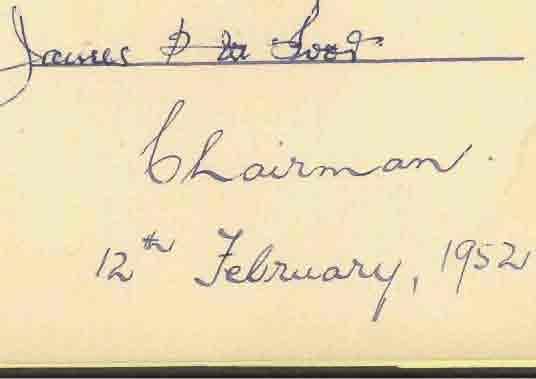 James
Chairman.
12th February, 1952